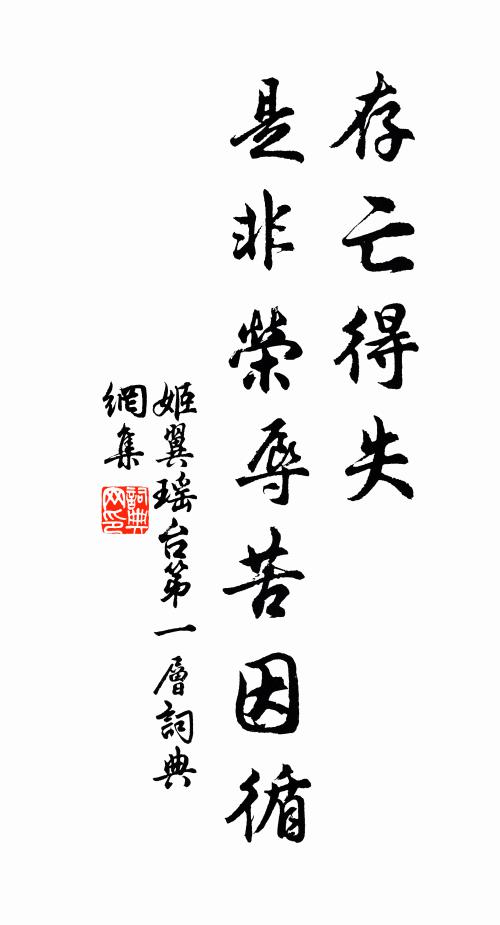 存亡得失
是非榮辱苦因循
姬翼瑶台第一層詞典
網集
詞典
网印